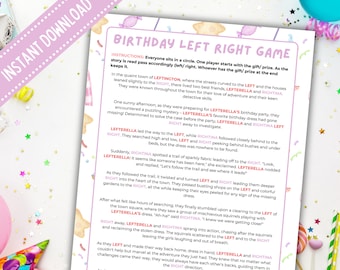 INSTANT DOWNLOAD
BIRTHDAY LEFT RIGHT GAME
INSTRUCTIONS: Everyone sits in a circle. One player starts with the gift/ prize. As the
story is read pass accordingly (left/ right). Whoever has the gift/ prize at the end
keeps it.
In the quaint town of LEFTINGTON, where the streets curved to the LEFT and the houses
leaned slightly to the RIGHT, there lived two best friends, LEFTERELLA and RIGHTINA.
They were known throughout the town for their love of adventure and their keen
detective skills.
One sunny afternoon, as they were preparing for LEFTERELLA's birthday party, they
encountered a puzzling mystery - LEFTERELLA's favorite birthday dress had gone
missing! Determined to solve the case before the party, LEFTERELLA and RIGHTINA set
RIGHT away to investigate.
LEFTERELLA led the way to the LEFT, while RIGHTINA followed closely behind to the
RIGHT. They searched high and low, LEFT and RIGHT, peeking behind bushes and under
beds, but the dress was nowhere to be found.
Suddenly, RIGHTINA spotted a trail of sparkly fabric, leading off to the RIGHT. "Look,
LEFTERELLA! It seems like someone has been here," she exclaimed. LEFTERELLA nodded
and replied, "Let's follow the trail and see where it leads!"
As they followed the trail, it twisted and turned LEFT and RIGHT, leading them deeper
RIGHT into the heart of the town. They passed bustling shops on the LEFT and colorful
gardens to the RIGHT, all the while keeping their eyes peeled for any sign of the missing
dress.
After what felt like hours of searching, they finally stumbled upon a clearing to the LEFT of
the town square where they saw a group of mischievous squirrels playing with
LEFTERELLA's dress. "Ah-ha!" said RIGHTINA, "I knew we were getting close!"
RIGHT away, LEFTERELLA and RIGHTINA sprang into action, chasing after the squirrels
and reclaiming the stolen dress. The squirrels scattered to the LEFT and to the RIGHT
As LEFT and RIGHT made their way back home, dress in hand, LEFTERELLA and RIGHTINA
couldn't help but marvel at the adventure they just had. They knew that no matter what
challenges came their way, they would always have each other's backs, guiding them to